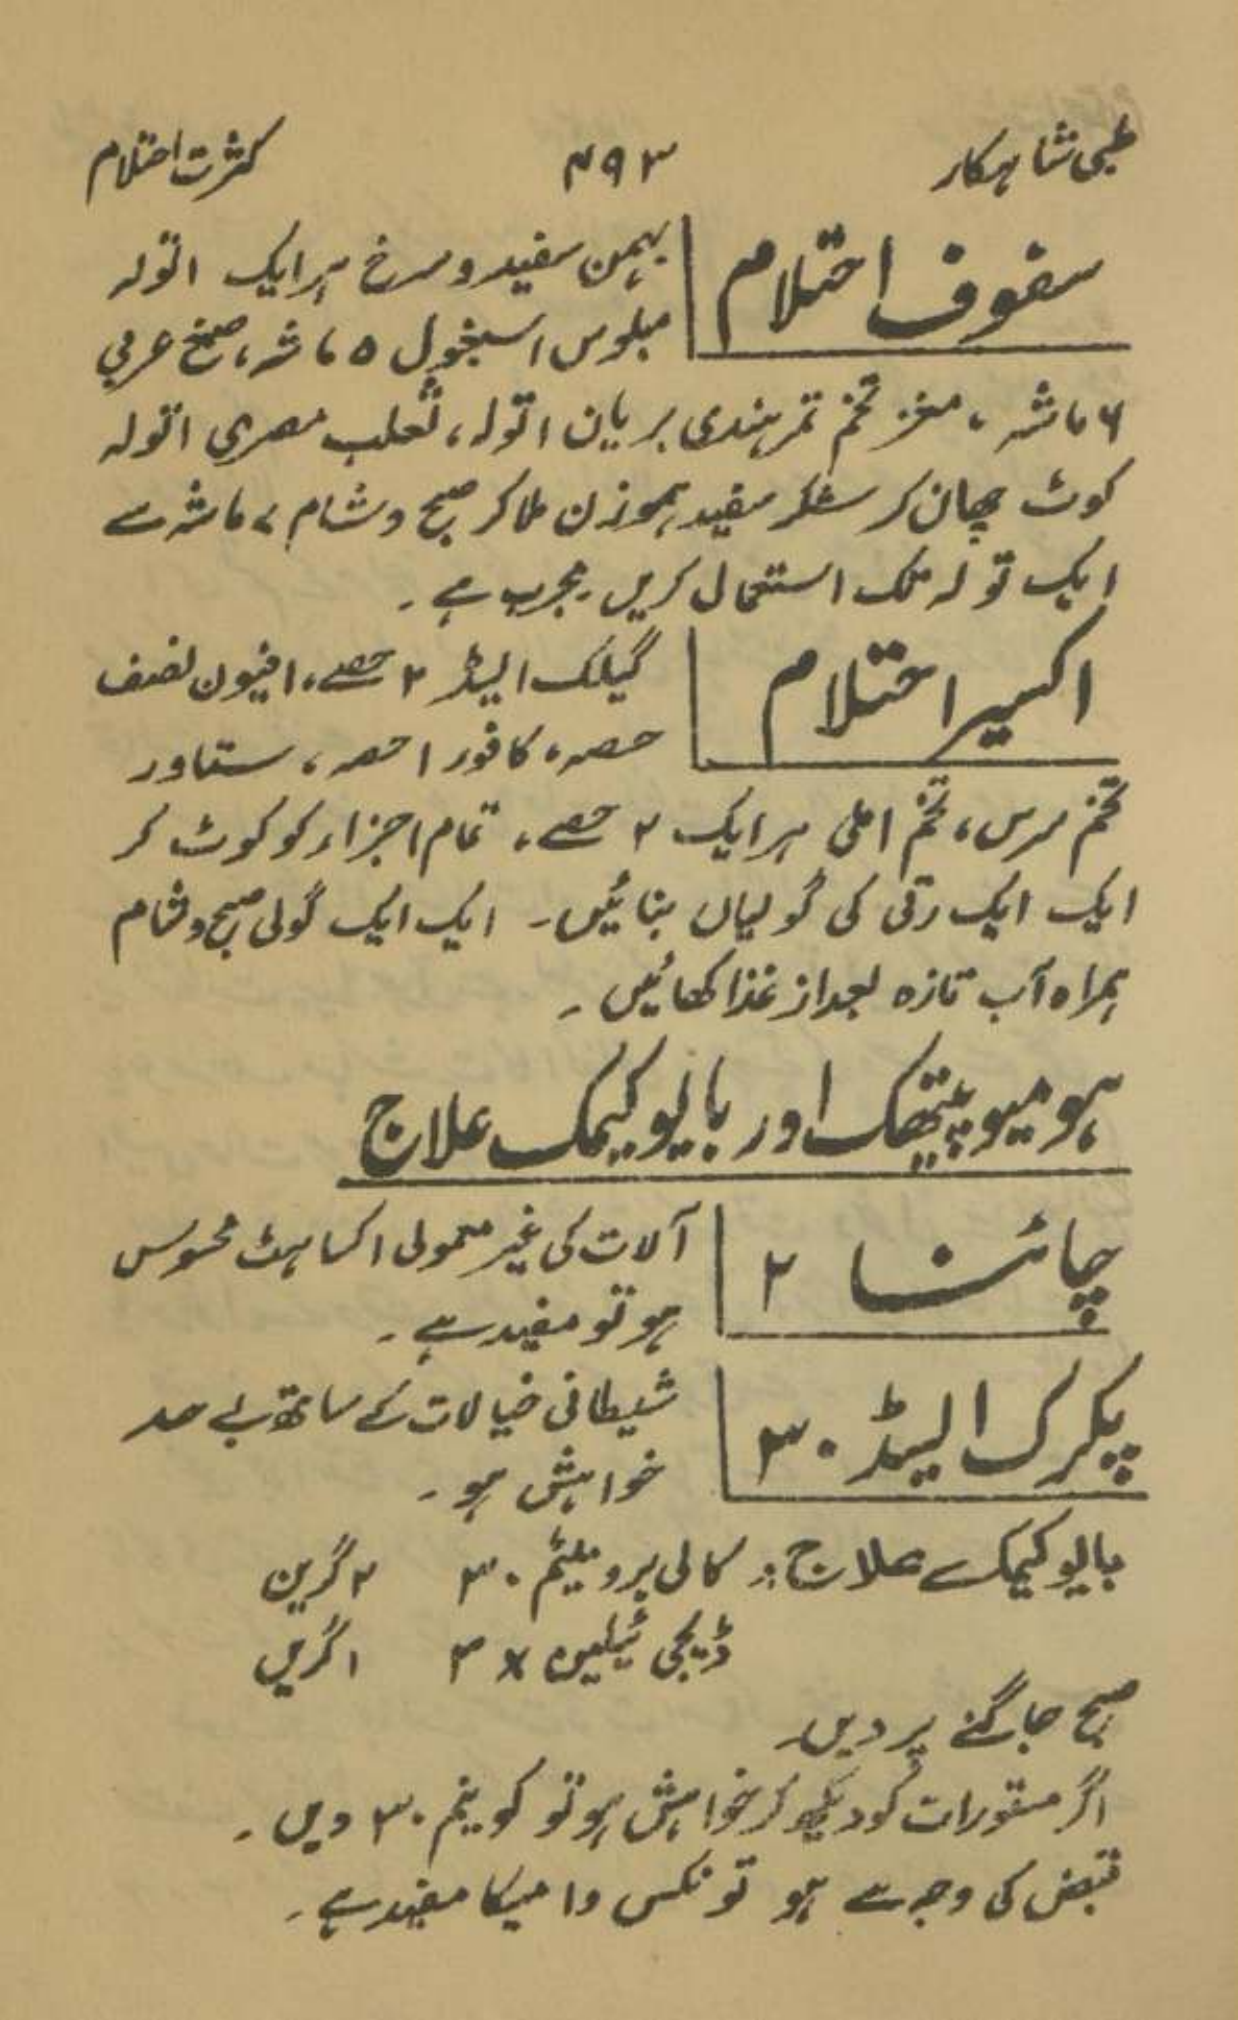 طبی شاہکار ۴۹۳ کثرت احتلام
سفوف احتلام
بہمن سفید و سرخ ہر ایک ۱ تولہ
سبلوس اسبغول ۵ ماشہ، صمغ عربی
۶ ماشہ، مغز تخم تمر ہندی بریان ۱ تولہ، ثعلب مصری ۱ تولہ
کوٹ چھان کر شکر سفید ہموزن ملا کر صبح و شام ۷ ماشہ سے
ایک تولہ تک استعمال کریں مجرب ہے۔
اکسیر احتلام
گیلک ایسڈ ۲ حصے، افیون نصف
حصہ، کافور ۱ حصہ، ستاور
تخم سرس، تخم املی ہر ایک ۲ حصے، تمام اجزاء کو کوٹ کر
ایک ایک رتی کی گولیاں بنائیں۔ ایک ایک گولی صبح و شام
ہمراہ آب تازہ بعد از غذا کھائیں۔
ہومیوپیتھک اور بایوکیمک علاج
چائنا ۲
آلات کی غیر معمولی اکساہٹ محسوس
ہو تو مفید ہے۔
پکرک ایسڈ ۳۰
شیطانی خیالات کے ساتھ بے حد
خواہش ہو۔
بایوکیمک علاج:۔ کالی برومیٹم ۳۰ ۲ گرین
ڈیجی ٹیلیس ۳x ۱ گرین
صبح جاگنے پر دیں۔
اگر مستورات کو دیکھ کر خواہش ہو تو کونیم ۳۰ دیں۔
قبض کی وجہ سے ہو تو نکس وامیکا مفید ہے۔